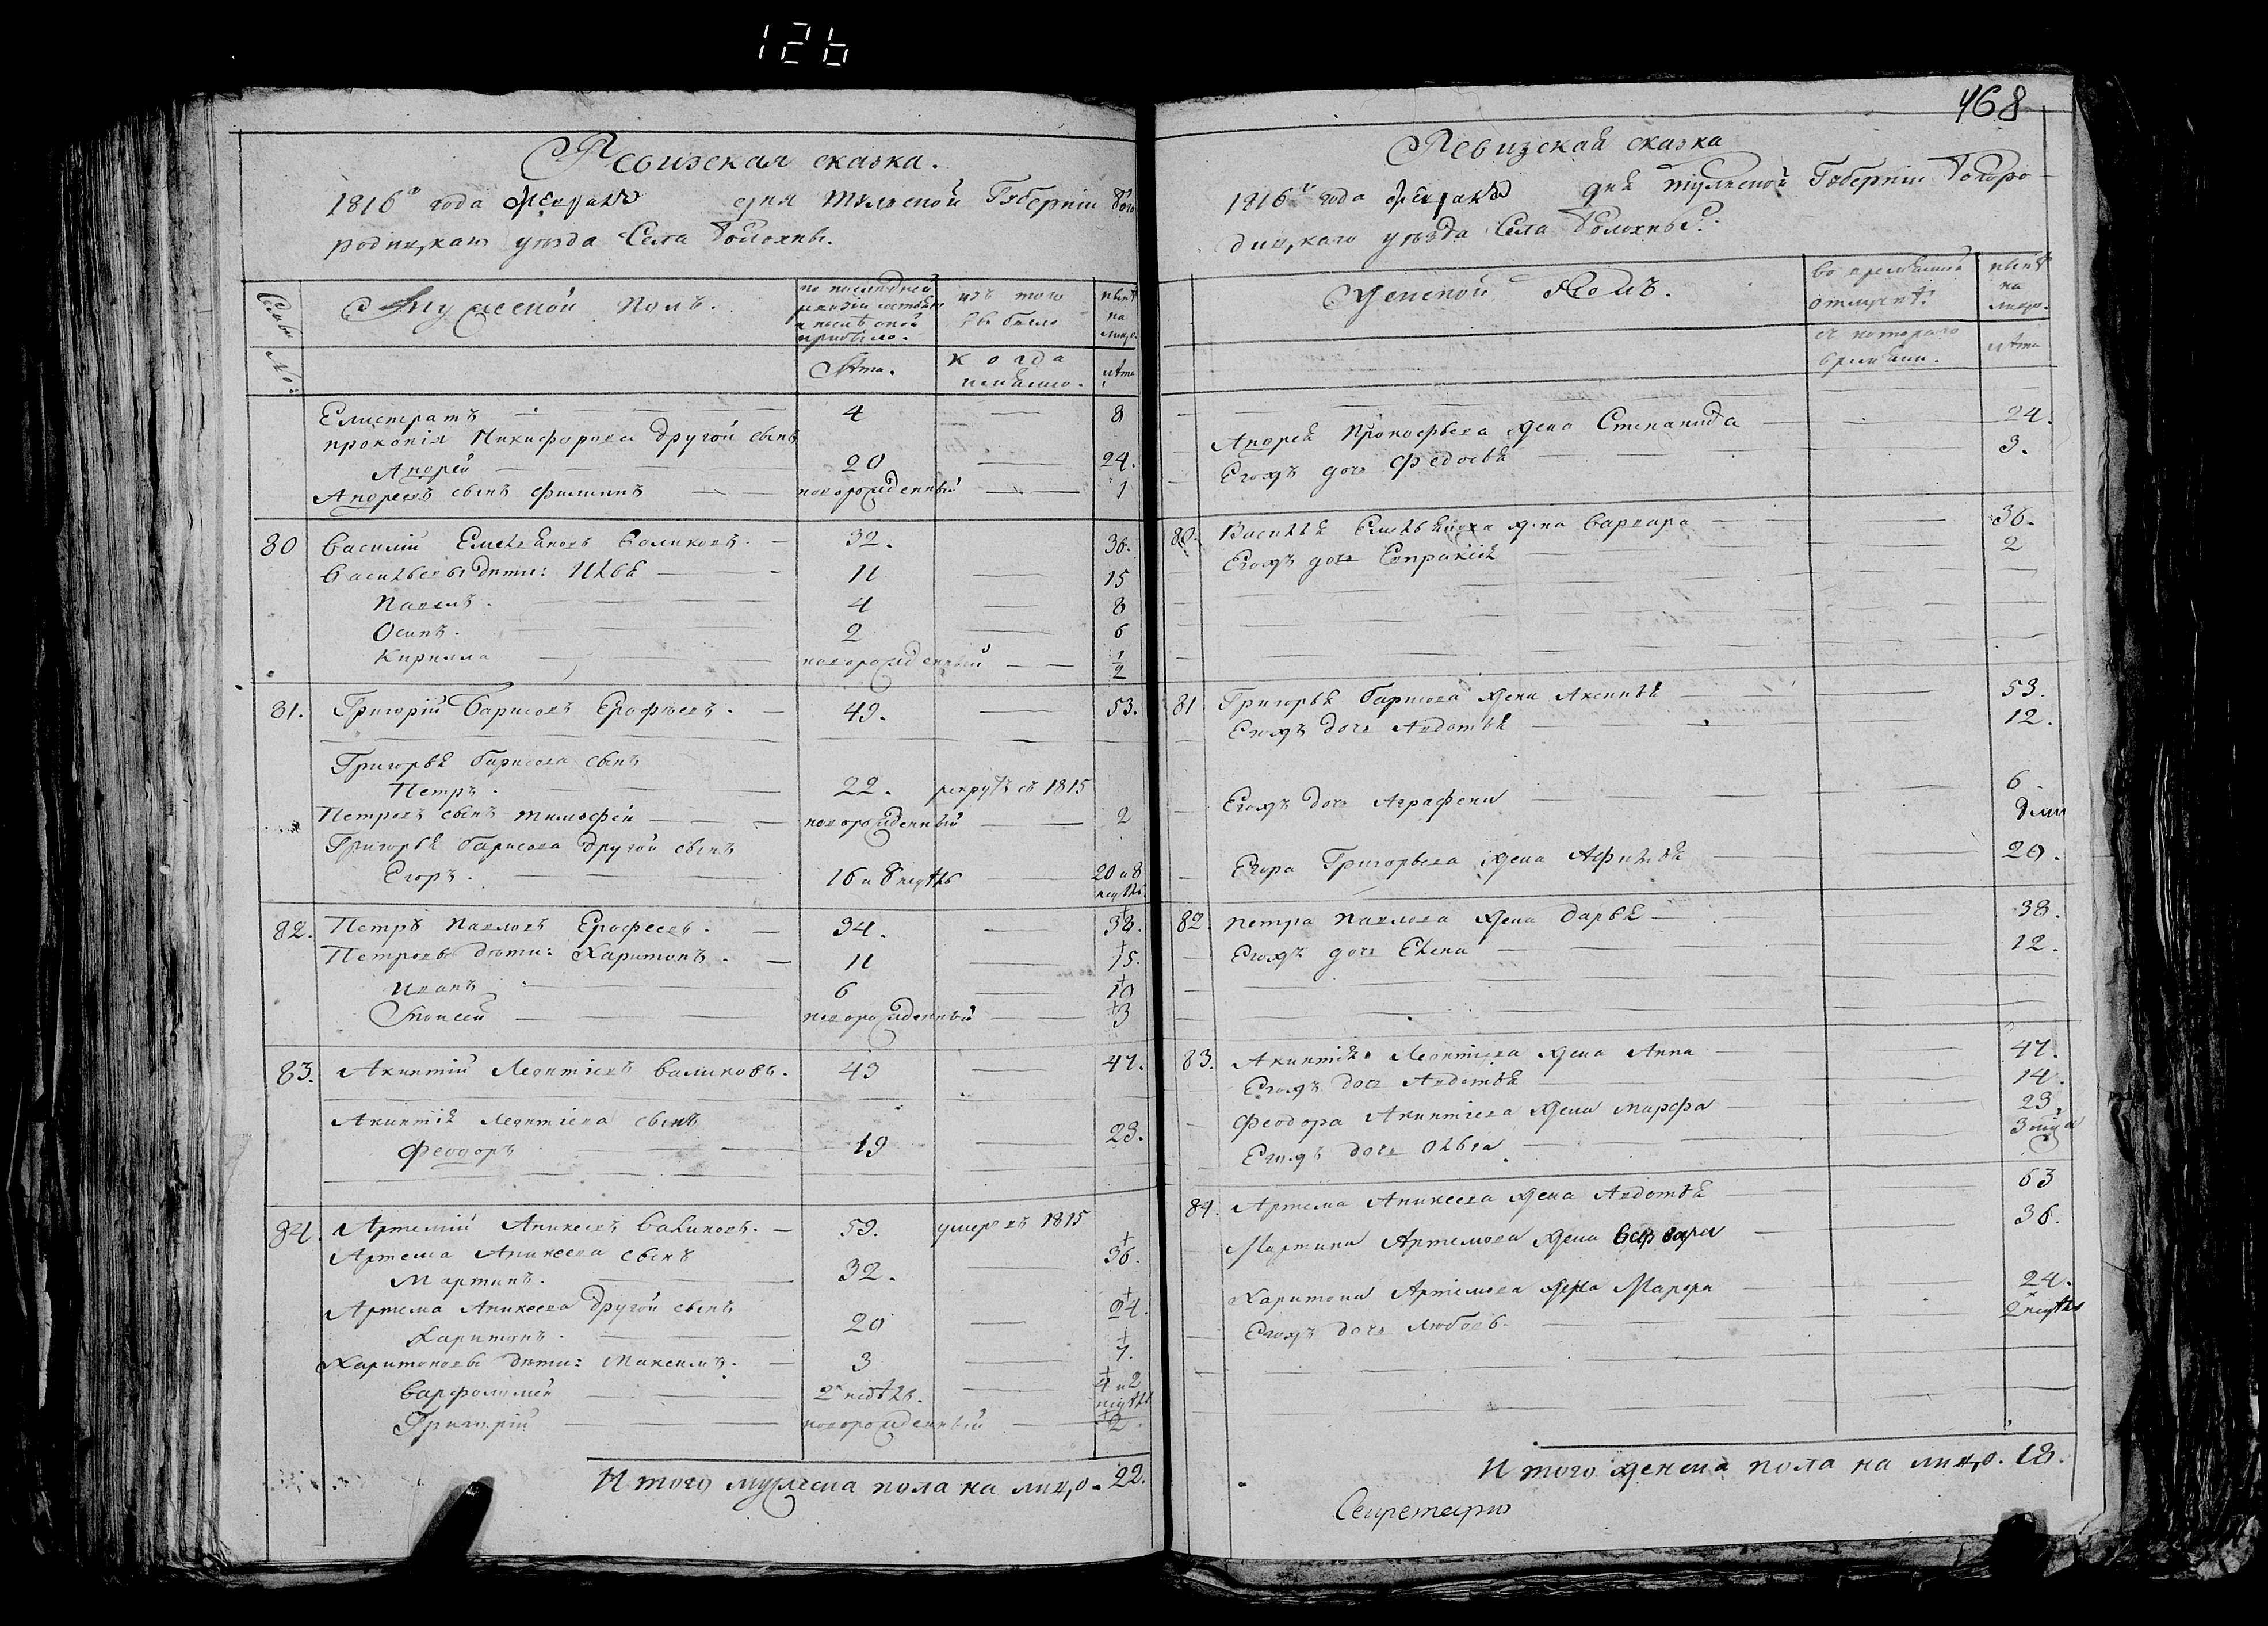 126
Ревизская сказка.
1816го года февраля дня Тульской Губернiи Бого
родицкаго уезда Села Болохны.
Семьи №:
Мужеской полъ.
по последней ревизiи состояло и после оной прибыло.
изъ того выбыло
ныне на лицо.
Лета.
когда именно.
лета
Елистратъ 4 8
прокопiя Никифорова другой сынъ
Андрей 20 24.
Андреевъ сынъ филипъ новорожденный 1
80 Василiй Емельяновъ Валиковъ. 32. 36.
Васильевы дети: Илья 11 15
Павелъ. 4 8
Осипъ. 2 6
Кирилла новорожденный 1/2
81. Григорiй Барисовъ Ерофеевъ. 49. 53.
Григорья барисова сынъ
Петръ. 22. рекрутъ въ 1815
Петровъ сынъ тимофей новорожденный 2
Григорья барисова другой сынъ
Егоръ. 16 и 8 недель 20 и 8 недель
82. Петръ Павловъ Ерофеевъ. 34. 38.
Петровы дети: Харитонъ. 11 15.
Иванъ 6 10
Моисей новорожденный 3
83. Акинтiй Леонтiевъ Валиковъ. 43 47.
Акинтiя Леонтiева сынъ
Феодоръ 19 23.
84. Артемiй Аникеевъ Валиковъ. 59. умеръ въ 1815
Артема Аникеева сынъ
Мартинъ. 32. 36.
Артема Аникеева другой сынъ
Харитонъ. 20 24.
Харитоновы дети: Максимъ. 3 7.
Варфоломей 2 недель. 4 и 2 недель
Григорiй новорожденный 2.
Итого мужеска пола на лицо. 22.
468
Ревизская сказка
1816го года февраля дня тульской Губернiи Богоро
дицкаго уезда Села Болохны.
Женской полъ.
во временной отлучке.
ныне на лицо.
съ котораго времени.
лета
Андрея Прокофьева жена Степанида 24.
Егожъ дочь Федосья 3.
80. Василья Емельянова жена Варвара 36.
Егожъ дочь Евпраксiя 2
81 Григорья барисова жена Аксинья 53.
Егожъ дочь Авдотья 12.
Егожъ дочь Аграфена 6.
Егора Григорьева жена Афимья 20.
82. Петра Павлова жена Дарья 38.
Егожъ дочь Елена 12.
83. Акинтiя Леонтiева жена Анна 47.
Егожъ дочь Авдотья 14.
Феодора Акинтiева жена марфа 23
Егожъ дочь Ольга 3 неде
84. Артема Аникеева жена Авдотья 63
Мартина Артемова жена Варвара 36.
Харитона Артемова жена Марфа 24.
Егожъ дочь Любовь. 2 недель
Итого женска пола на лицо. 18.
Секретарь